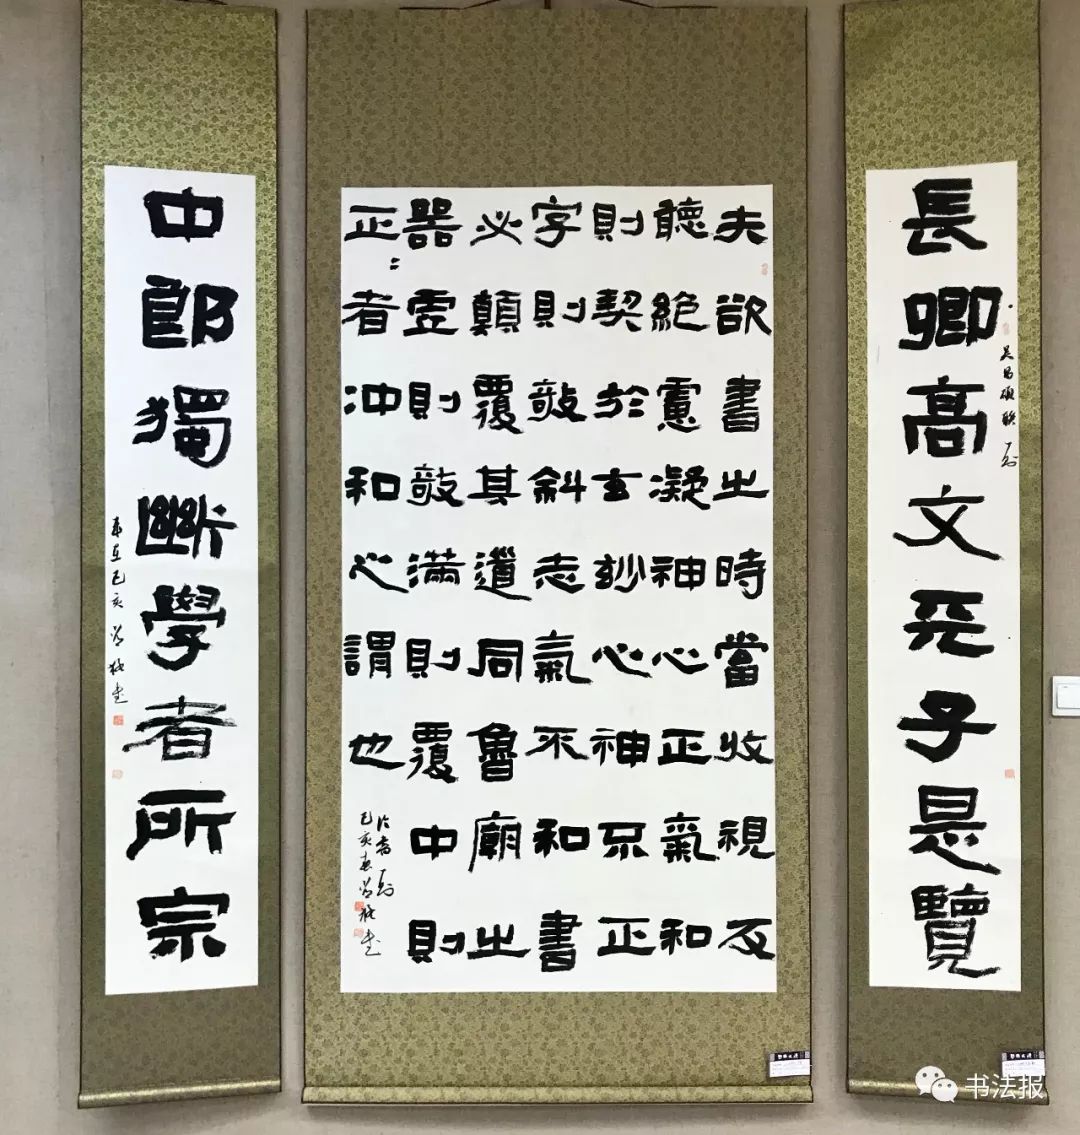 長卿高文天子是覽
吴昌碩聯
夫欲書之時當收視反
聽絕慮凝神心正氣和
則契於玄妙心神不正
字則敧斜志氣不和書
必顛覆其道同魯廟之
器虛則敧滿則覆中則
正〻者冲和之謂也
己亥春
中郎獨斷學者所宗
歲在己亥
书法报